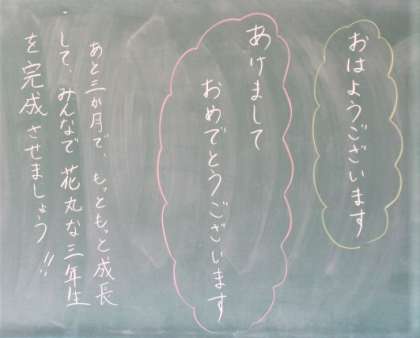 おはようございます
あけまして
おめでとうございます
あと三か月で、もっともっと成長
して、みんなで花丸な三年生
を完成させましょう!!